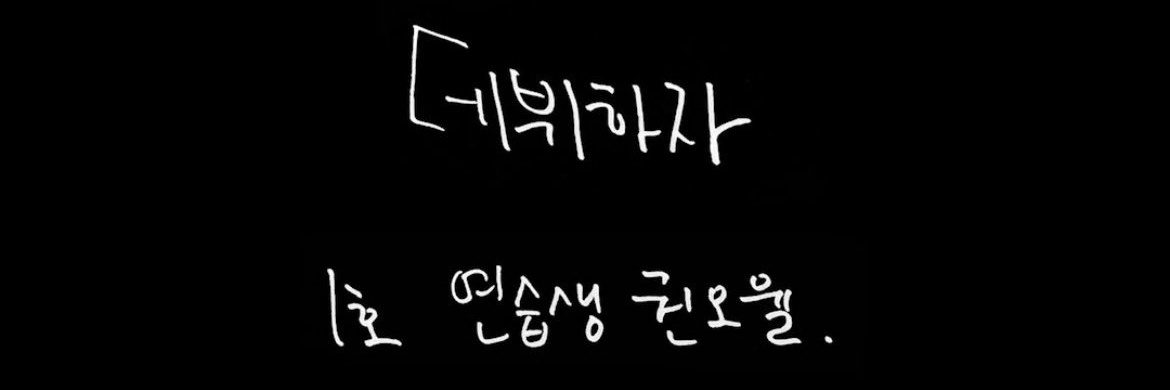 데뷔하자
1호 연습생 권오월.